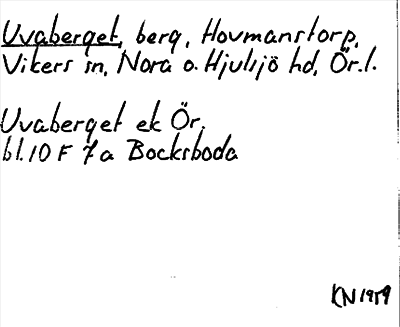 Uvaberget, berg, Hovmanstorp,
Vikers sn, Nora o. Hjulsjö hd, Ör.l.
Uvaberget ek Ör.
bl. 10 F 7a Bocksboda
KN 1959